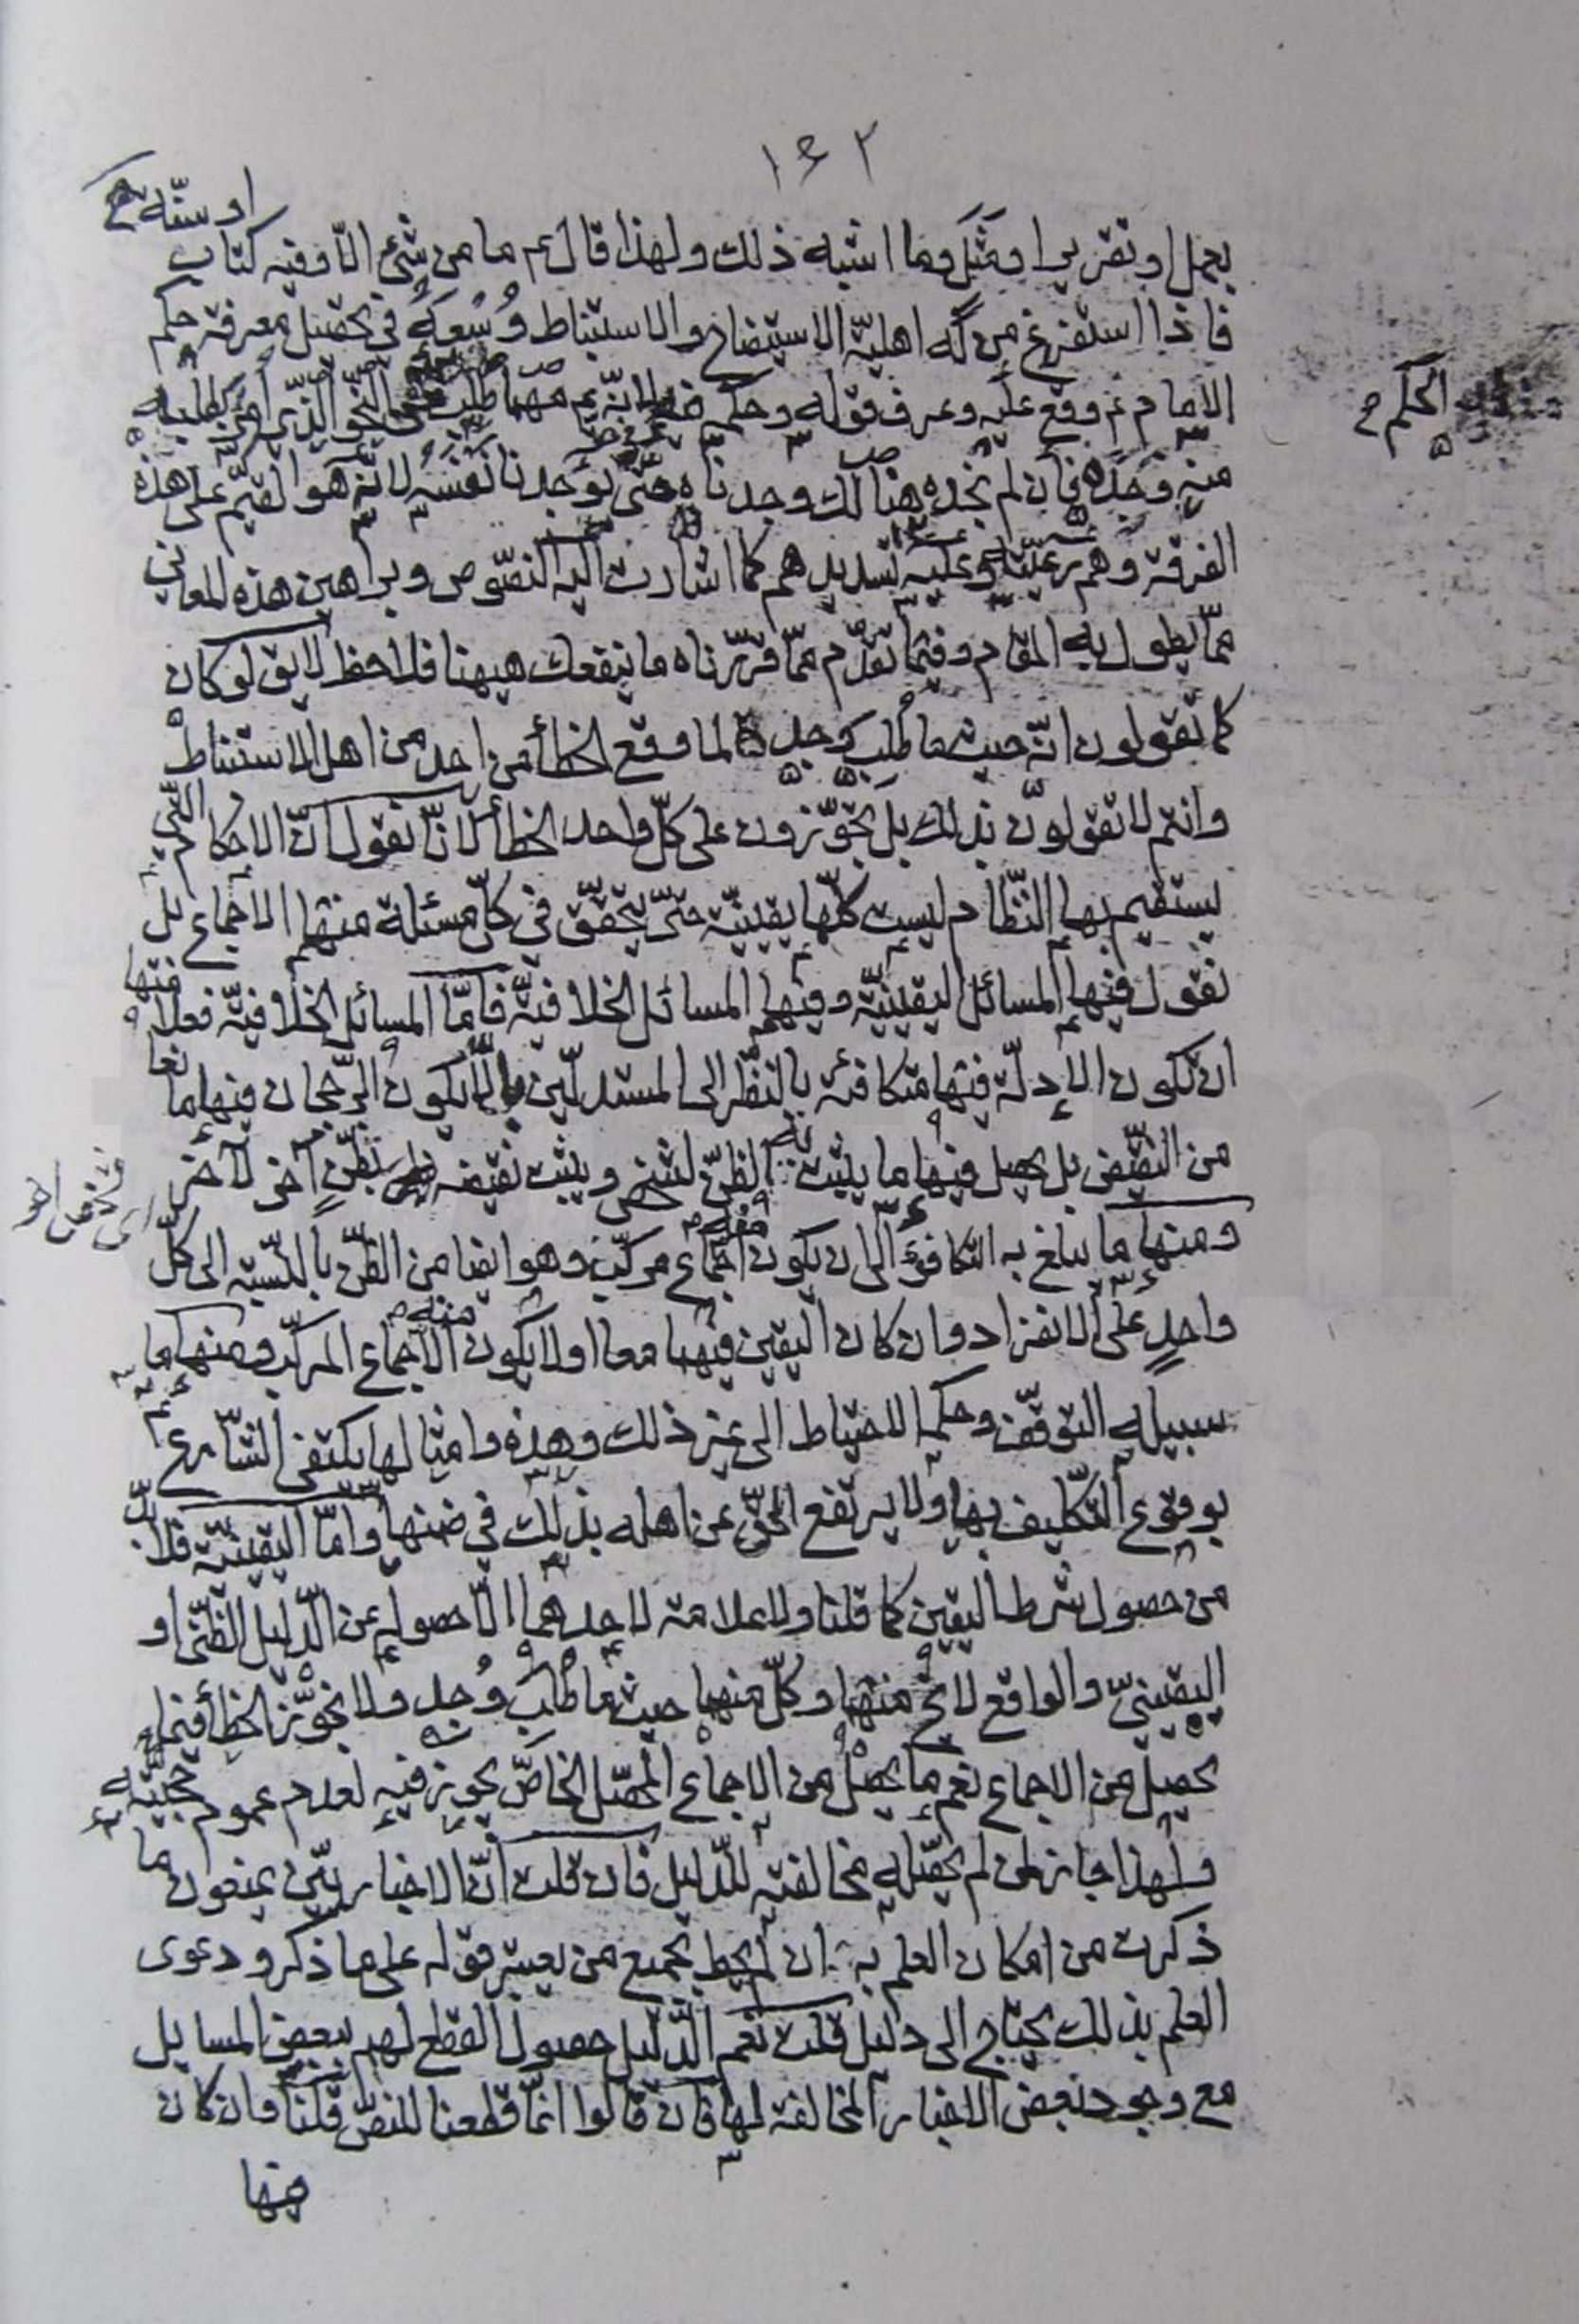 ١٤٢
او سنّة
بعمل او تقرير او مَثَل وما اشبه ذلك ولهذا قال ع ما من شئ الّا وفيه كتاب
فاذا استفرغ من له اهليّة الاستيضاح والاستنباط وُسْعَهُ في تحصيل معرفة حكم
الامام ع وقع عليه وعرف قوله وحكمه لانّه ع مهما طُلب على النحو الذي امر بطلبه
الحكم
منه وُجد فان لم نجده هنالك وجدناه حتّى يوجدنا نفسه لانّه هو القيّم على هذه
الفرقة وهم رعيّته وعليه تسديدهم كما اشارت اليه النصوص وبراهين هذه المعاني
ممّا يطول به المقام وفيما تقدّم ممّا قرّرناه ما ينفعك هيهنا فلاحظ لا يق لو كان
كما تقولون انّه حيث ما طُلب وُجد لما وقع الخطأ من احد من اهل الاستنباط
وانتم لا تقولون بذلك بل تجوّزون على كلّ واحد الخطأ لانّا نقول انّ الاحكام التي
يستقيم بها النّظام ليست كلّها يقينيّة حتّى يتحقّق في كلّ مسئلة منها الاجماع بل
نقول فيها المسائل اليقينيّة وفيها المسائل الخلافيّة فامّا المسائل الخلافيّة فعلا فيها
ان تكون الادلّة فيها متكافئة بالنّظر الى المستدلّين لئلّا يكون الرّجحان فيها مانعا
من النّقيض بل يحصل فيها ما يثبت به الظنّ لشخص ويثبت نقيضه بظنٍّ آخر لآخر
ومنها ما يبلغ به التكافؤ الى ان يكون فيه اجماع مركّب وهو ايضا من الظنّ بالنّسبة الى كلّ
واحدٍ على الانفراد وان كان اليقين فيها معا اولا يكون منه الاجماع المركّب ومنها ما
سبيله التوقّف وحكم الاحتياط الى غير ذلك وهذه وامثالها يكتفى الشّارع
بوقوع التّكليف بها ولا يرتفع الحقّ عن اهله بذلك في ضمنها وامّا اليقينيّة فلا بدّ
من حصول شرط اليقين كما قلنا ولا علامة لاحدهما الّا حصوله عن الدّليل الظّنّي او
اليقينيّ والواقع لا يخ منها وكلّ منها حيث ما طُلب وُجد ولا نجوّز الخطأ فيما
يحصل من الاجماع نعم ما يحصل من الاجماع المحصّل الخاصّ يجوز فيه لعدم عموم حجّيته
ولهذا جاز لمن لم يحصّله مخالفته للدّليل فان قلت انّ الاخباريّين يمنعون ما
ذكرت من امكان العلم به ان لم يحط بجميع من يعتبر قوله على ما ذكر ودعوى
العلم بذلك يحتاج الى دليل قلت نعم الدّليل حصول القطع لهم ببعض المسايل
مع وجود بعض الاخبار المخالفة لها فان قالوا انّما قطعنا للنصّ قلنا فان كان
منها